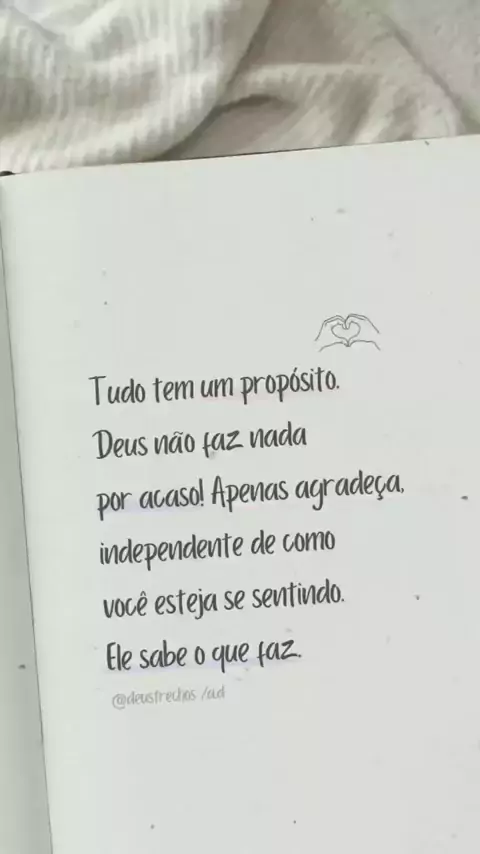 Tudo tem um propósito.
Deus não faz nada
por acaso! Apenas agradeça,
independente de como
você esteja se sentindo.
Ele sabe o que faz.
@deustrechos /ad